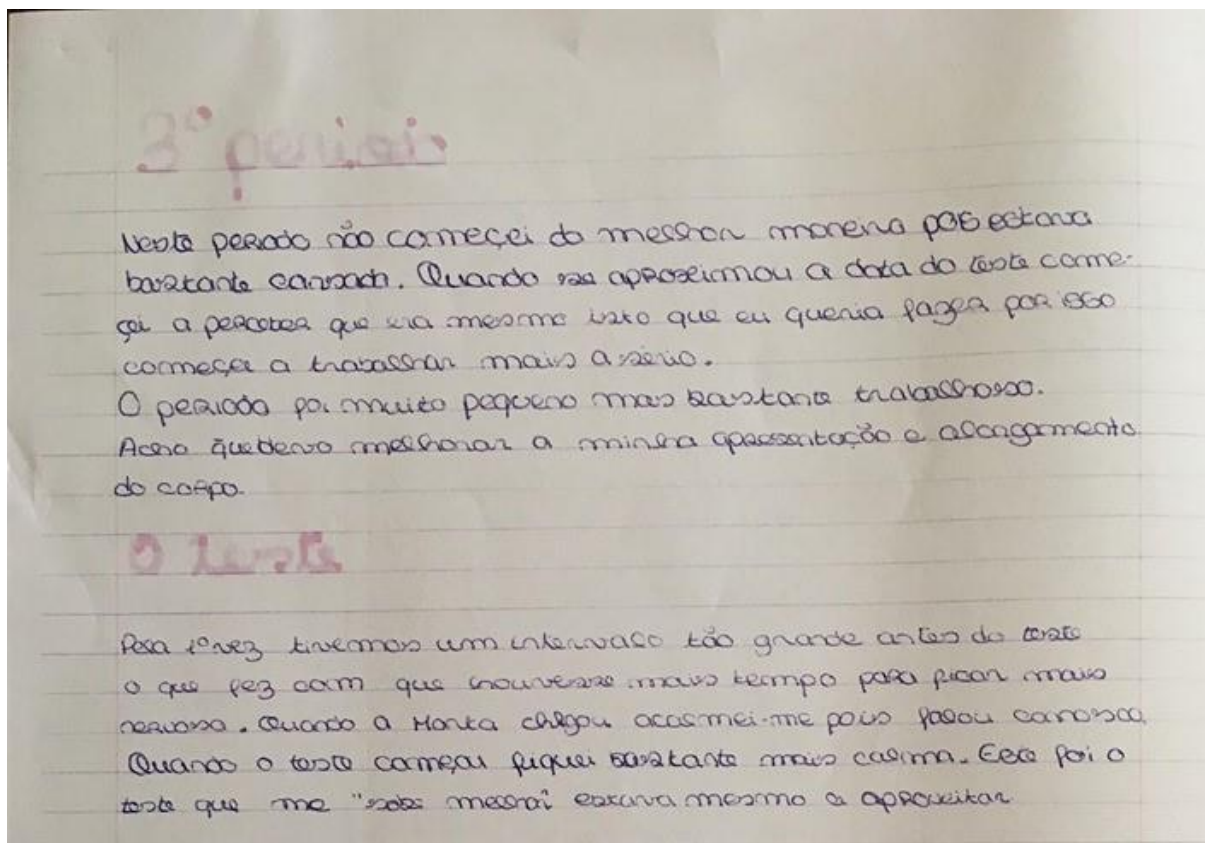 3º período
Neste periodo não começei da melhor maneira pois estava
bastante cansada. Quando se aproximou a data do teste come-
çei a perceber que era mesmo isto que eu queria fazer por isso
começei a trabalhar mais a sério.
O periodo foi muito pequeno mas bastante trabalhoso.
Acho que devo melhorar a minha apresentação e alongamento
do corpo.
O teste
Pela 1º vez tivemos um intervalo tão grande antes do teste
o que fez com que houvesse mais tempo para ficar mais
nervosa. Quando a Marta chegou acalmei-me pois falou connosco.
Quando o teste começou fiquei bastante mais calma. Este foi o
teste que me "soube melhor" estava mesmo a aproveitar